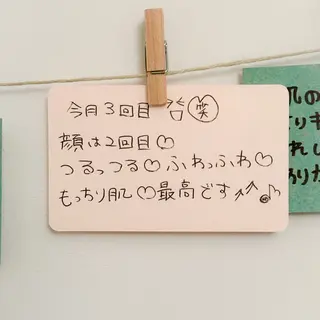 今月3回目 笑
顔は2回目♡
つるっつる♡ふわっふわ♡
もっちり肌♡最高です↗↗♪
肌の